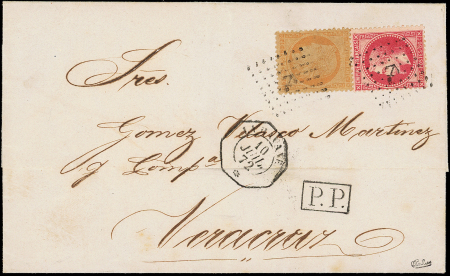 Sres.
Gomez Velasco Martinez
y Compª
10
JUIL
72
P.P.
Veracruz